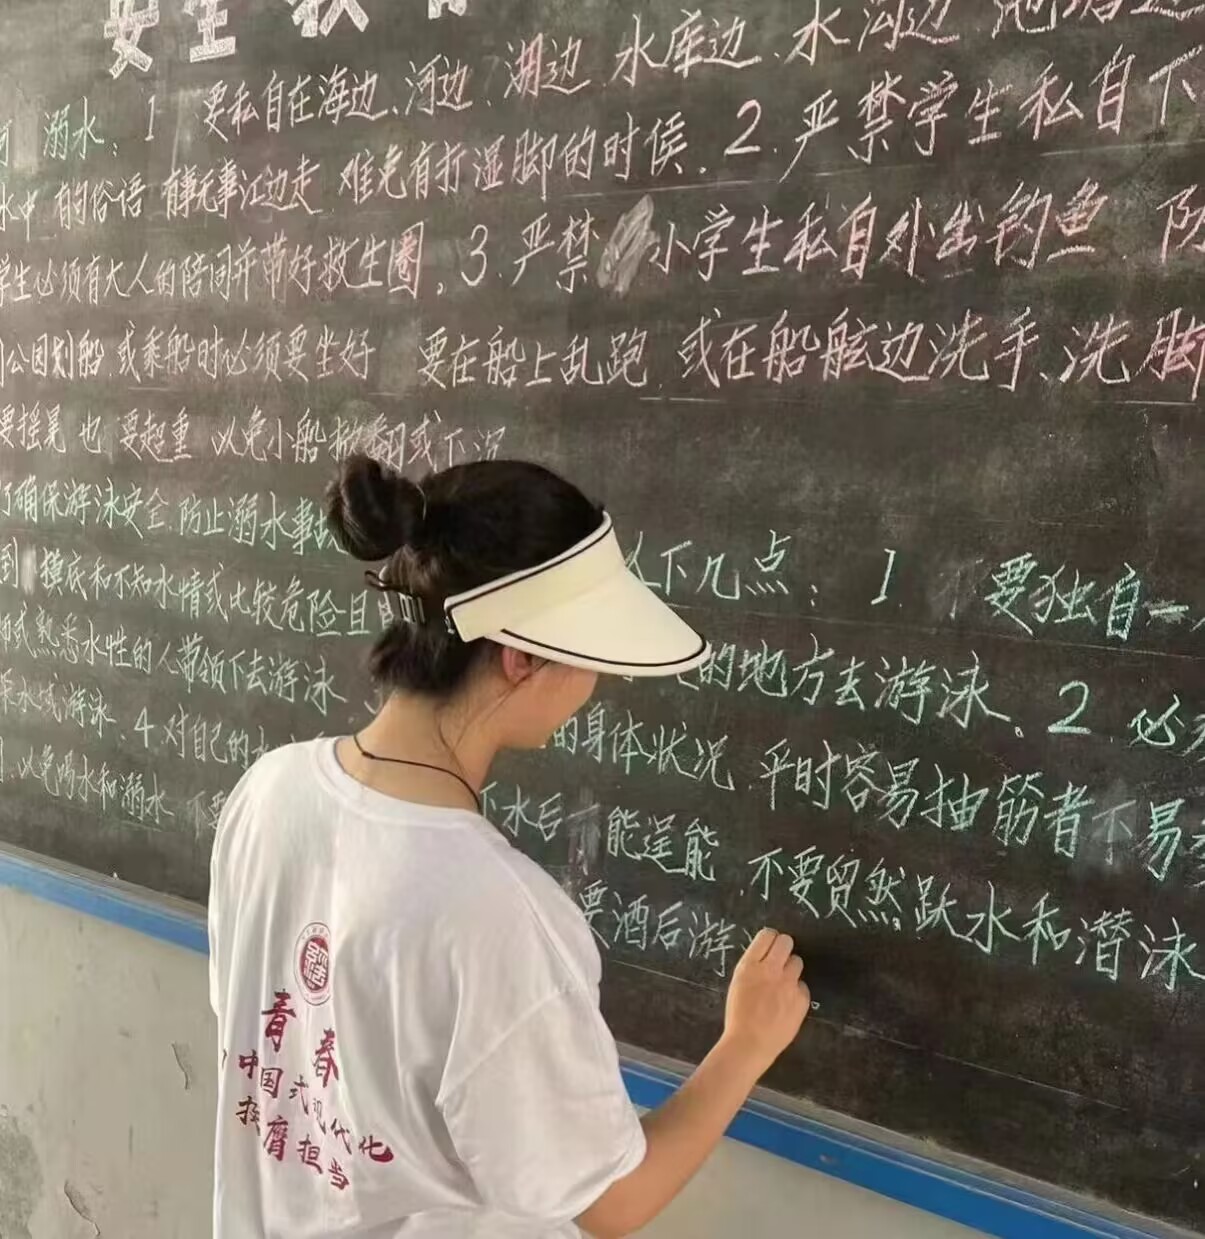 安全教育
溺水:1 要私自在海边、河边、湖边、水库边、水沟边、池塘边
水中 有的俗语 有事无事江边走 难免有打湿脚的时候.2.严禁学生私自下
学生必须有大人的陪同并带好救生圈.3.严禁 小学生私自外出钓鱼.防
公园划船.或乘船时必须要坐好 要在船上乱跑.或在船舷边洗手、洗脚
要摇晃 也 要超重 以免小船掀翻或下沉
确保游泳安全.防止溺水事故 以下几点:1. 要独自一
到 摸底和不知水情或比较危险且 的地方去游泳.2.必
熟悉水性的人带领下去游泳
水域游泳.4.对自己的水 的身体状况 平时容易抽筋者不易
以免呛水和溺水.不要 下水后 能逞能.不要贸然跃水和潜泳
要酒后游
青春
中国式现代化
挺膺担当